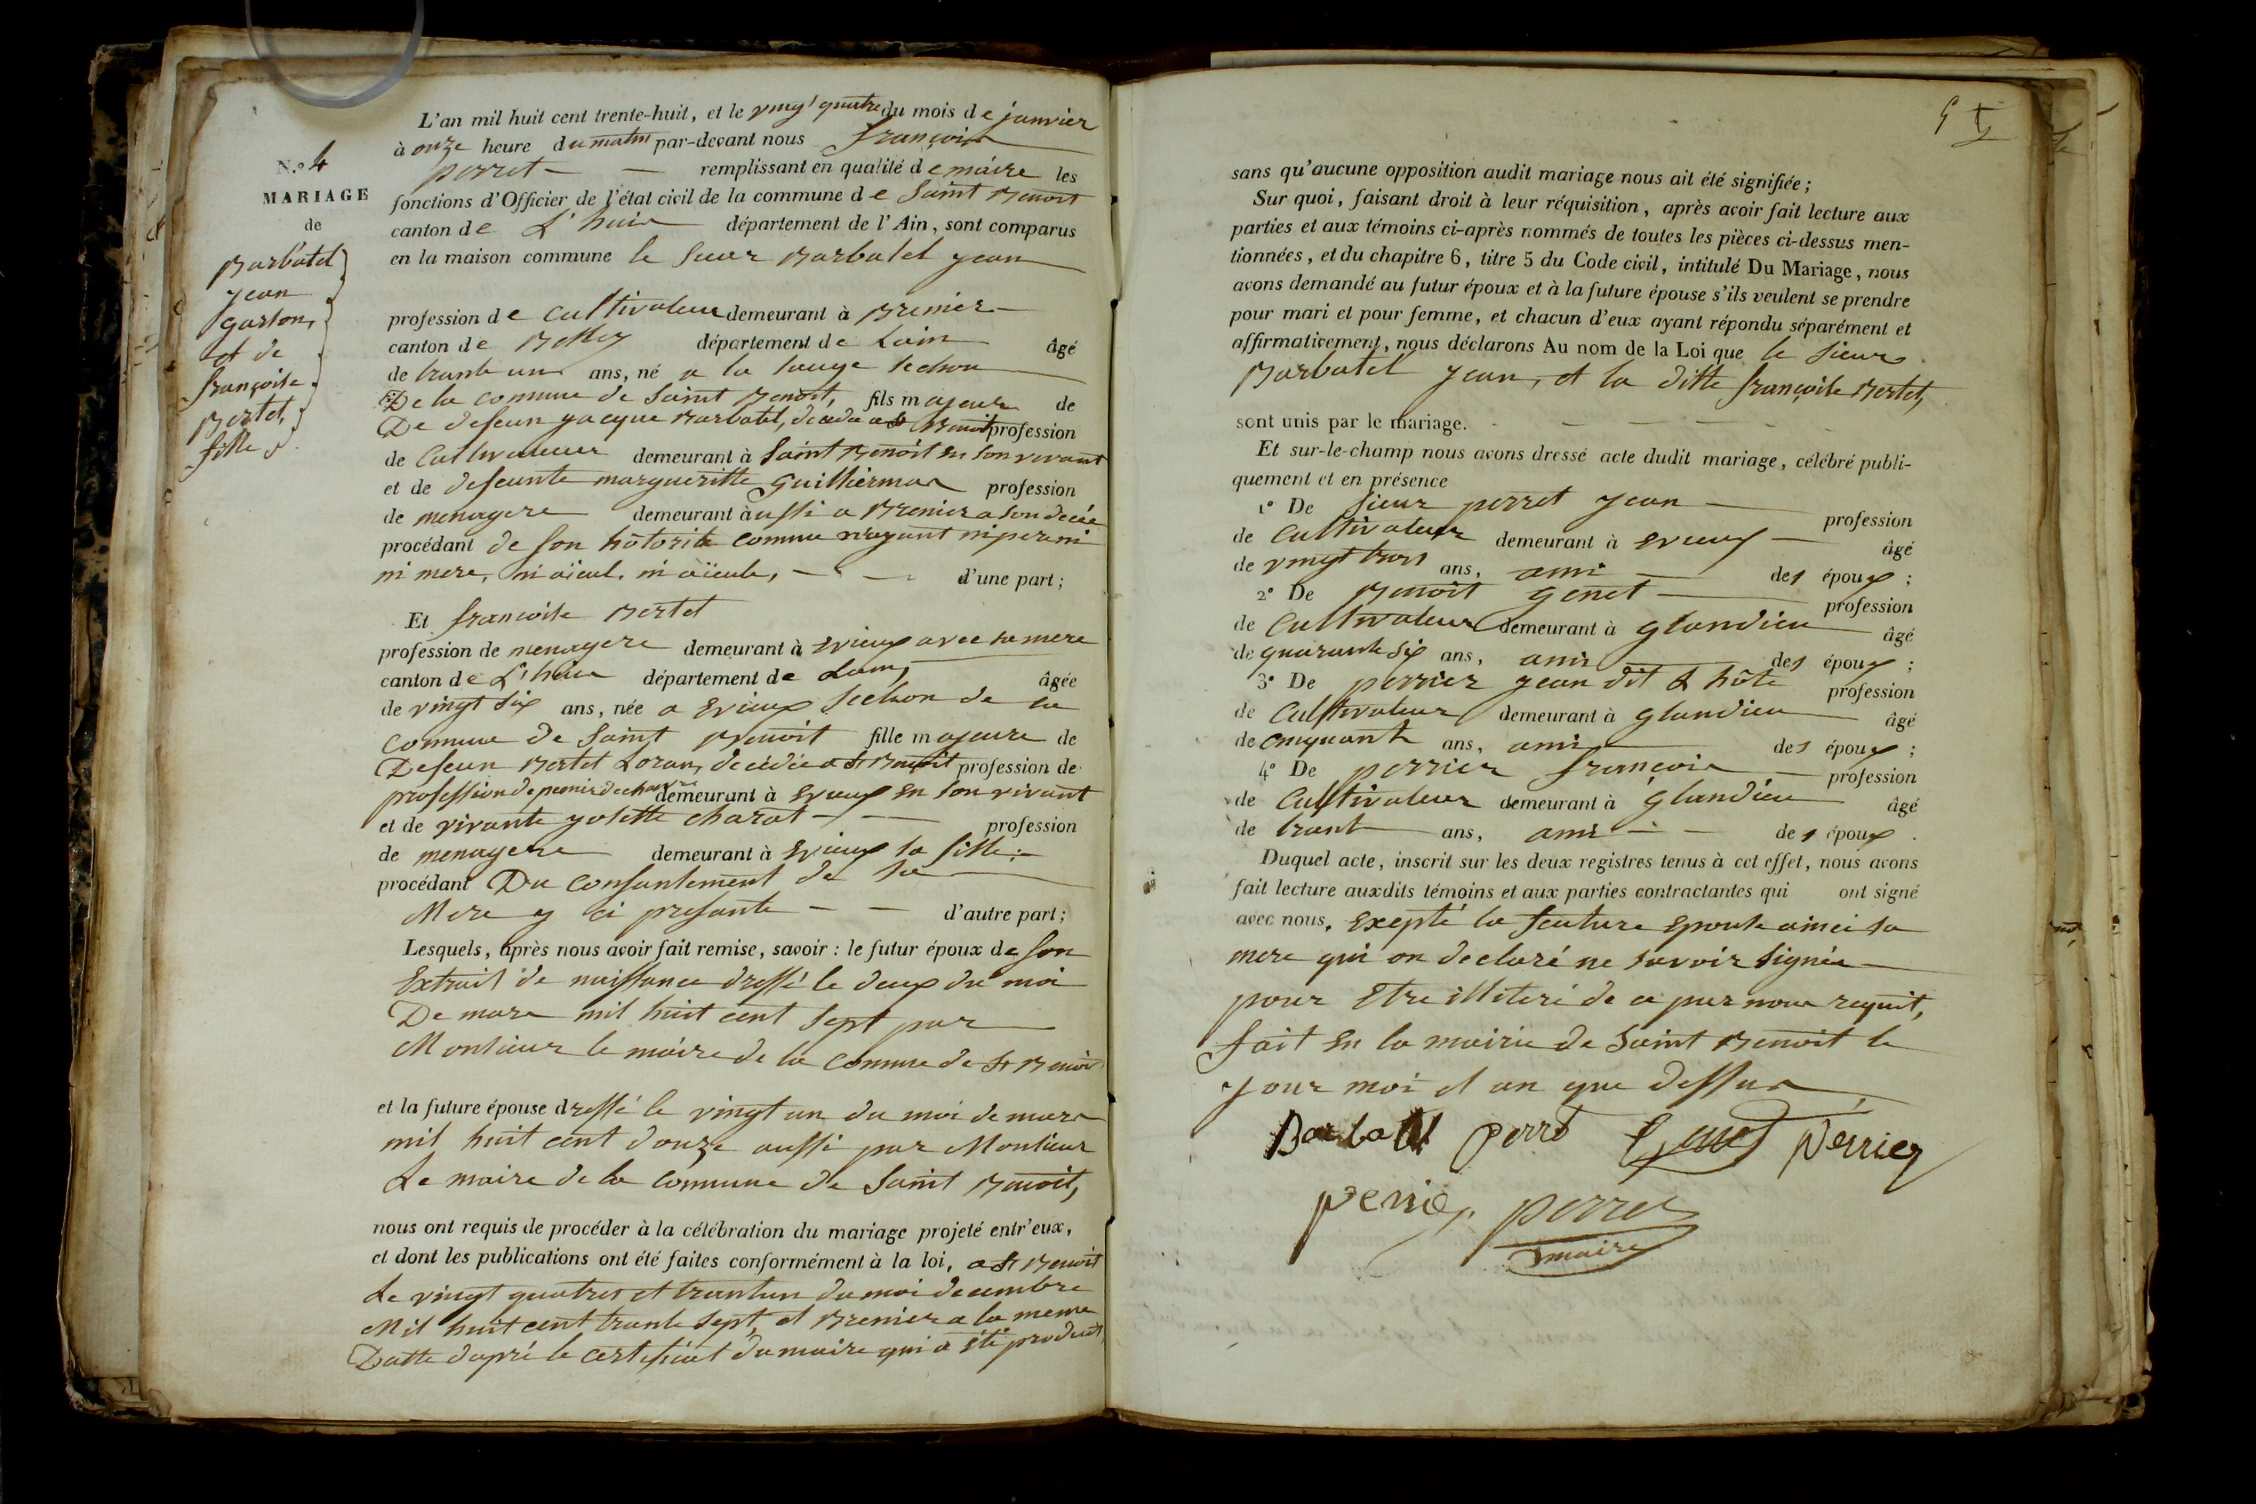 N.º 4
MARIAGE
de
Barbatet
jean
garson,
et de
françoise
Bertet,
fille
L'an mil huit cent trente-huit, et le vingt quatre du mois de janvier
à onze heure du matin par-devant nous françois
perret — — remplissant en qualité de maire les
fonctions d'Officier de l'état civil de la commune de Saint Benoit
canton de L'huis département de l'Ain, sont comparus
en la maison commune le sieur Barbatet jean
profession de cultivateur demeurant à Brenier —
canton de Belley département de Lain âgé
de trante un ans, né a la sauge section
De la commune de Saint Benoit, fils majeur de
De defeun jacque Barbatet, décédé a St Benoit profession
de Cultivateur demeurant à Saint Benoit en son vivant
et de defeunte margueritte Guilliermas profession
de menagere demeurant à aussi a Brenier a son decée
procédant de son hotorité comme n'ayant ni pere ni
ni mere, ni aïeul, ni aïeule, — — d'une part ;
Et francoise Bertet
profession de menagere demeurant à Evieux avec sa mere
canton de L'huis département de Lain, âgée
de vingt six ans, née a Evieux section de la
commune de Saint Benoit fille majeure de
Defeun Bertet Loran, décédée a St Benoit profession de
profession de demeurant à Evieux en son vivant
et de vivante josette charat — — profession
de menagere demeurant à Evieux sa fille ; —
procédant Du consantement de sa
Mere y ci presante — — d'autre part ;
Lesquels, après nous avoir fait remise, savoir : le futur époux de son
Extrait de naissance dressé le deux du moi
De mars mil huit cent sept par
Monsieur le maire de la commune de St Benoit
et la future épouse dressé le vingt un du moi de mars
mil huit cent douze aussi par Monsieur
Le maire de la commune de Saint Benoit,
nous ont requis de procéder à la célébration du mariage projeté entr'eux,
et dont les publications ont été faites conformément à la loi, a St Benoit
Le vingt quatres et trantun du moi decembre
Mil huit cent trante sept, et Brenier a la meme
Datte dapré le certificat du maire qui a été produit
sans qu'aucune opposition audit mariage nous ait été signifiée ;
Sur quoi, faisant droit à leur réquisition, après avoir fait lecture aux
parties et aux témoins ci-après nommés de toutes les pièces ci-dessus men-
tionnées, et du chapitre 6, titre 5 du Code civil, intitulé Du Mariage, nous
avons demandé au futur époux et à la future épouse s'ils veulent se prendre
pour mari et pour femme, et chacun d'eux ayant répondu séparément et
affirmativement, nous déclarons Au nom de la Loi que le sieur
Barbatet jean, et la ditte françoise Bertet,
sont unis par le mariage.
Et sur-le-champ nous avons dressé acte dudit mariage, célébré publi-
quement et en présence
1º De sieur perret jean — profession
de Cultivateur demeurant à Evieux — âgé
de vingt trois ans, ami — des époux ;
2º De Benoit genet — profession
de Cultivateur demeurant à glandieu âgé
de quarante six ans, ami des époux ;
3º De perrier jean dit L'hôte profession
de Cultivateur demeurant à glandieu âgé
de cinquante ans, ami des époux ;
4º De perrier françois — profession
de Cultivateur demeurant à glandieu âgé
de trant ans, ami — — des époux.
Duquel acte, inscrit sur les deux registres tenus à cet effet, nous avons
fait lecture auxdits témoins et aux parties contractantes qui ont signé
avec nous. Exepté la feuture Epouse ainci sa
mere qui on declaré ne savoir signée
pour Etre illiteré de ce par nous requit,
fait En la mairie de Saint Benoit le
jour moi et an que dessus
Barbatet perret Genet Perrier
perrier perret
maire